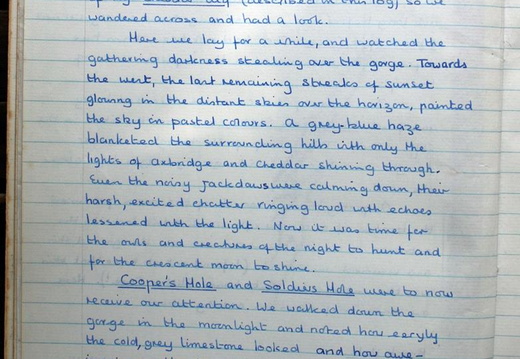 (described in this log) so we
wandered across and had a look.
Here we lay for a while, and watched the
gathering darkness stealing over the gorge. Towards
the west, the last remaining streaks of sunset
glowing in the distant skies over the horizon, painted
the sky in pastel colours. A grey-blue haze
blanketed the surrounding hills with only the
lights of Axbridge and Cheddar shining through.
Even the noisy Jackdaws were calming down, their
harsh, excited chatter ringing loud with echoes
lessened with the light. Now it was time for
the owls and creatures of the night to hunt and
for the crescent moon to shine.
Cooper's Hole and Soldiers Hole were to now
receive our attention. We walked down the
gorge in the moonlight and noted how eeryly
the cold, grey limestone looked and how awe-